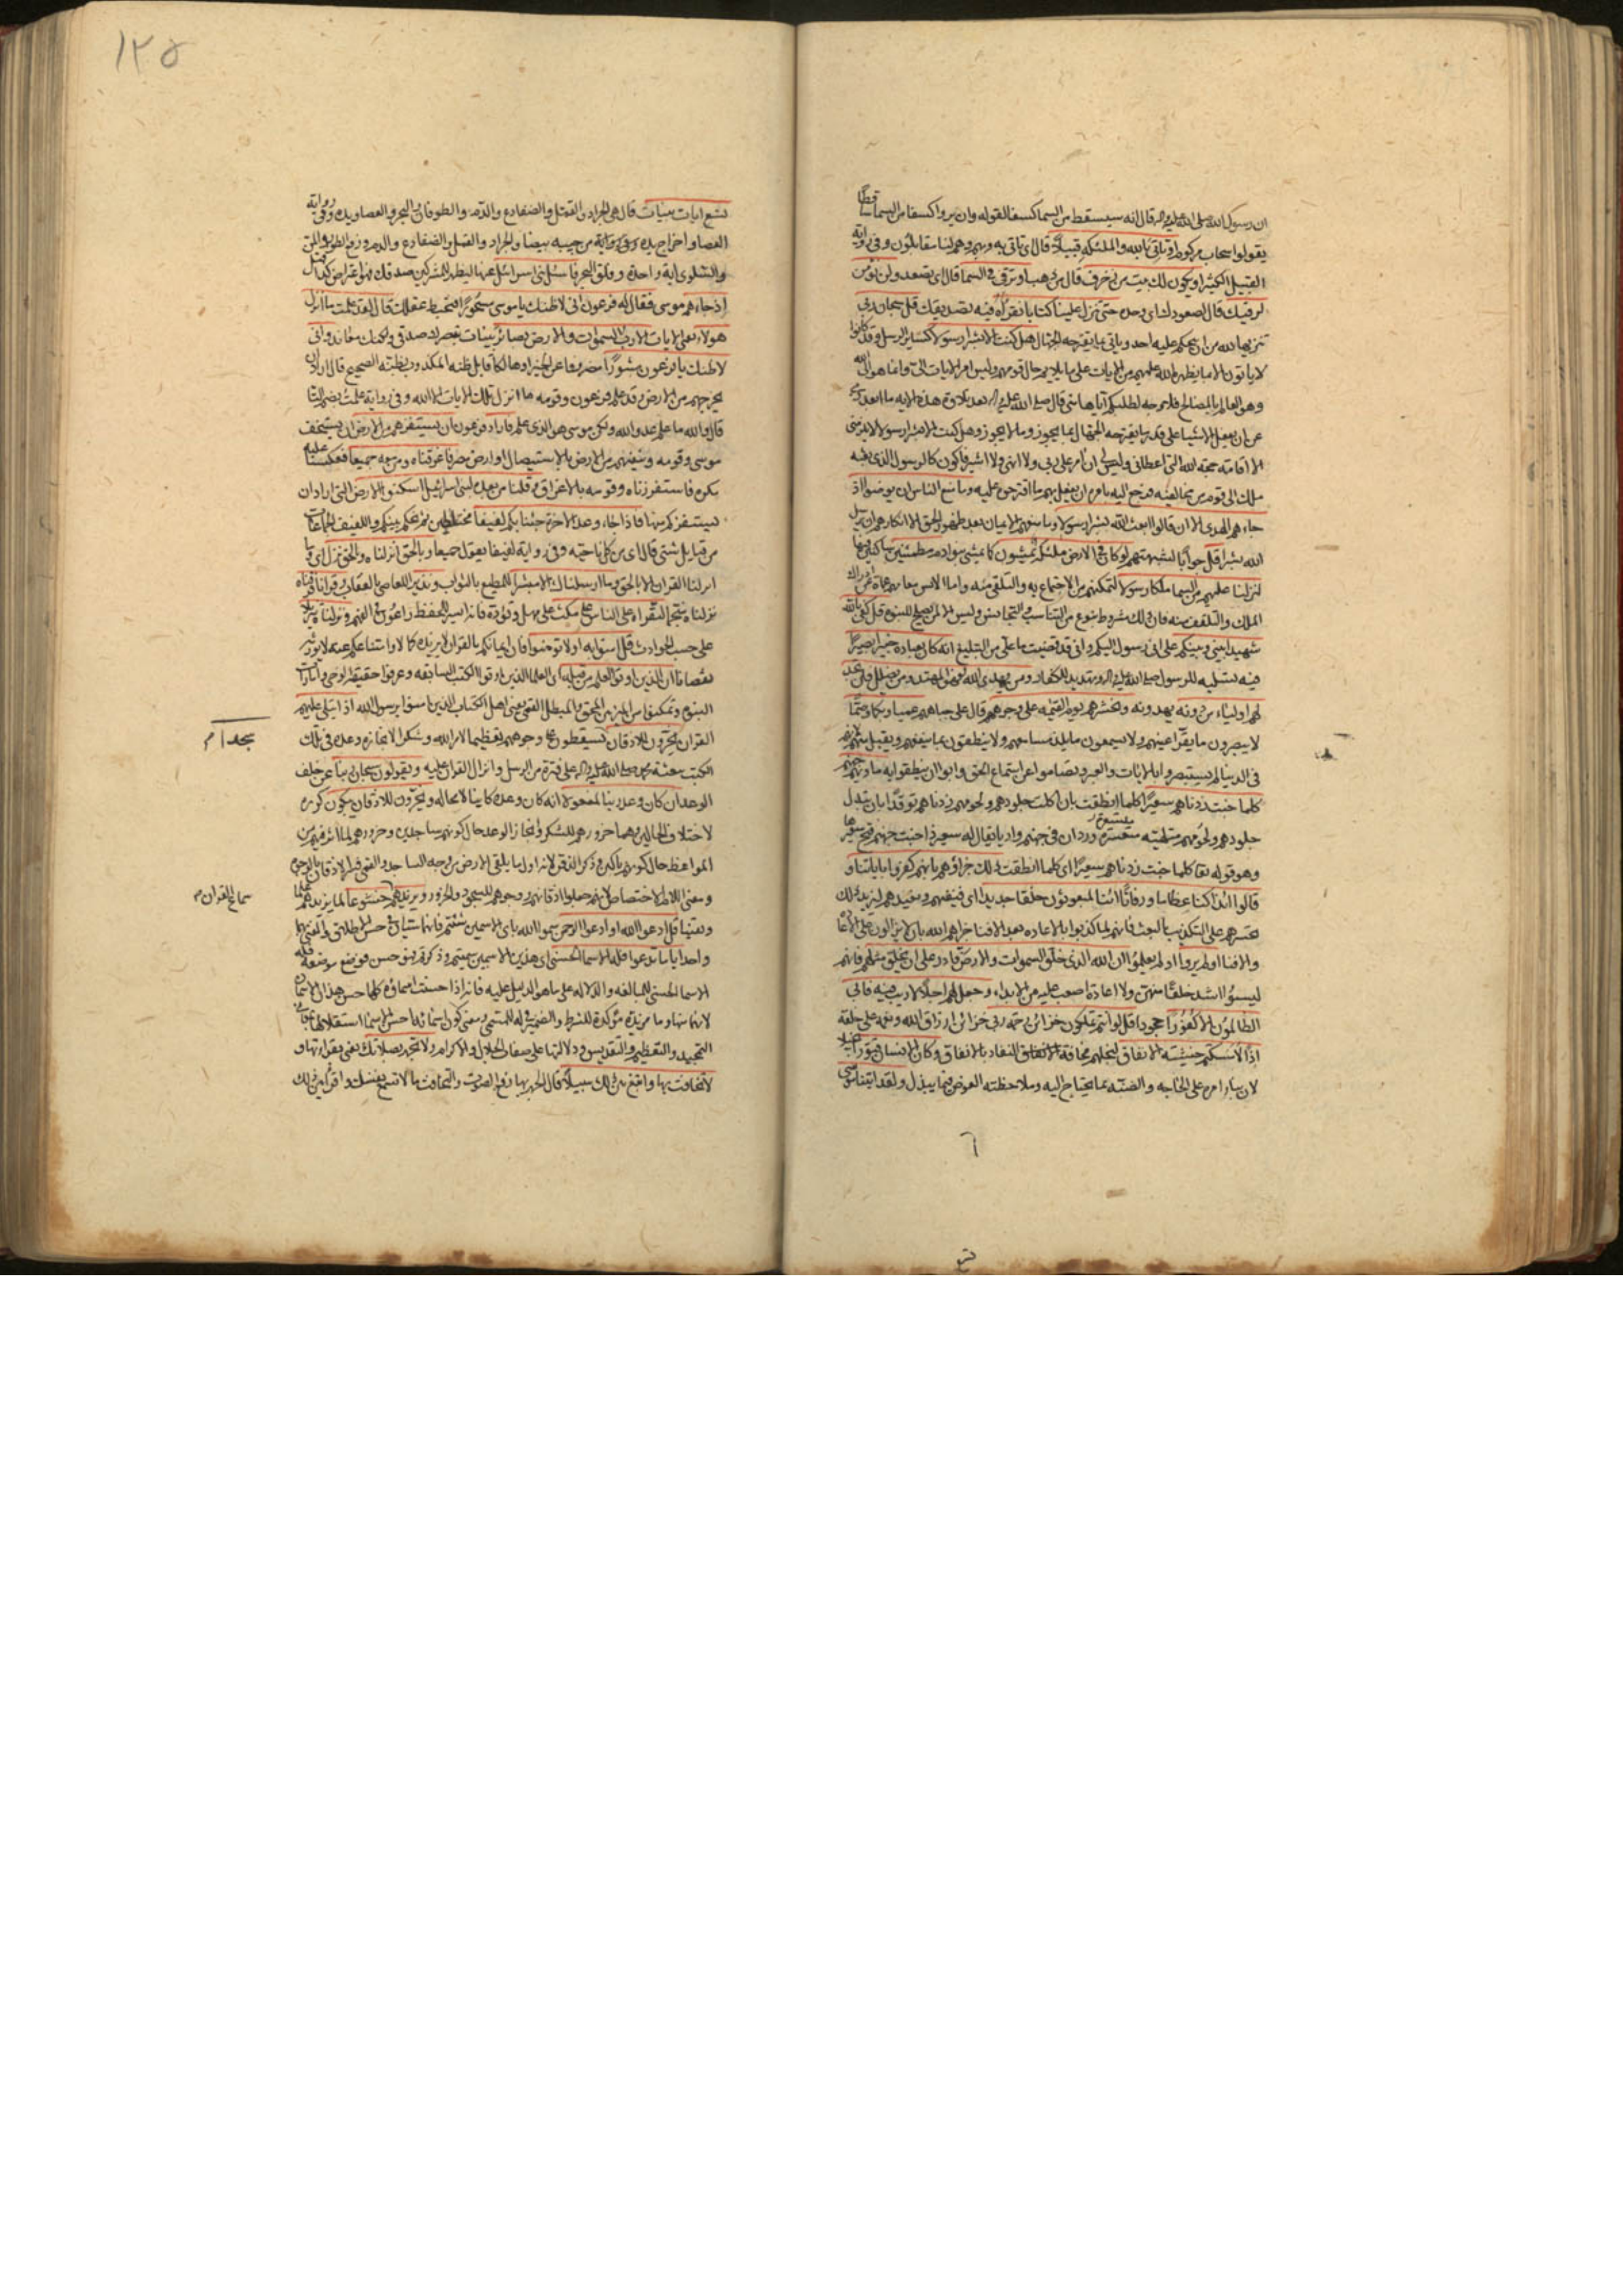 ان رسول الله صلى الله عليه واله قال انه سيسقط من السما كسفا لقوله وان يروا كسفا من السما ساقطًا
يقولوا سحاب مركوم او تاتى بالله والملئكه قبيلًا قال اى تاتى به وبهم وهم لنا مقابلون وفى رواية
القبيل الكثير او يكون لك بيت من زخرف قال من ذهب او ترقى فى السما قال اى يصعد ولن نؤمن
لرقيك قال لصعودك اى وحده حتى تنزل علينا كتابا نقراه فيه تصديقك قل سبحان ربى
تنزيها لله من ان يحكم عليه احد وياتى بما يقترحه الجهال هل كنت الا بشرا رسولا كسائر الرسل وقد كانوا
لا ياتون الا بما يظهره الله عليهم من الايات على ما يلايم حال قومهم وليس امر الايات الى وانما هو الى الله
وهو العالم بالمصالح فلا وجه لطلبكم اياها منى قال صلى الله عليه واله بعد تلاوة هذه الايه ما ابعد ربى
عن ان يفعل الاشيا على قدر ما يقترحه الجهال بما يجوز وما لا يجوز وهل كنت الا بشرا رسولا لا يلزمنى
الا اقامة حجة الله التى اعطانى وليس لى ان آمر على ربى ولا انهى ولا اشير فاكون كالرسول الذى بعثه
ملك الى قوم من مخالفيه فرجع اليه يامره ان يفعل بهم ما اقترحوه عليه وما منع الناس ان يومنوا اذ
جاءهم الهدى الا ان قالوا ابعث الله بشرا رسولا وما منعهم الايمان بعد ظهور الحق الا انكارهم ان يرسل
الله بشرا قل جوابًا لشبهتهم لو كان فى الارض ملئكة يمشون كما يمشى بنو ادم مطمئنين ساكنين فيها
لنزلنا عليهم من السما ملكا رسولا لتمكنهم من الاجتماع به والتلقى منه واما الانس فعامتهم عماة عن ادراك
الملك والتلقف منه فان ذلك مشروط بنوع من التناسب والتجانس وليس الا لمن يصلح للنبوة قل كفى بالله
شهيدا بينى وبينكم على انى رسول اليكم وانى قد قضيت ما على من التبليغ انه كان بعباده خبيرا بصيرًا
فيه تسليه للرسول صلى الله عليه واله وتهديد للكفار ومن يهدى الله فهو المهتد ومن يضلل فلن تجد
لهم اولياء من دونه يهدونه ونحشرهم يوم القيمه على وجوههم قال على جباههم عميا وبكما وصمًا
لا يبصرون ما يقر اعينهم ولا يسمعون ما يلذ مسامعهم ولا ينطقون بما ينفعهم ويقبل منهم لانهم
فى الدنيا لم يستبصروا بالايات والعبر وتصاموا عن استماع الحق وابوا ان ينطقوا به ماويهم جهنم
كلما خبت زدناهم سعيرًا كلما انطفت بان اكلت جلودهم ولحومهم زدناهم توقدًا بان نبدل
جلودهم ولحومهم متلهبة مستعرة ورد ان فى جهنم واديا يقال له سعير اذا خبت جهنم فتح سعيرها
وهو قوله تعا كلما خبت زدناهم سعيرًا اى كلما انطفت ذلك جزاؤهم بانهم كفروا باياتنا و
قالوا ائذا كنا عظاما ورفاتًا ائنا لمبعوثون خلقا جديدا اى فنيفنيهم ونعيدهم ليزيد ذلك
تحسرهم على التكذيب بالبعث فانهم لما كذبوا بالاعاده بعد الافنا جزاهم الله بان لا يزالون على الاعاده
والافنا اولم يروا اولم يعلموا ان الله الذى خلق السموات والارض قادر على ان يخلق مثلهم فانهم
ليسوا اشد خلقًا منهن ولا اعادة اصعب عليه من الابداء وجعل لهم اجلًا لا ريب فيه فابى
الظالمون الا كفورًا جحودا قل لو انتم تملكون خزائن رحمة ربى خزائن ارزاق الله ونعمه على خلقه
اذًا لامسكتم خشية الانفاق لبخلتم مخافة النفاد بالانفاق وكان الانسان قتورًا بخيلا
لان بناء امره على الحاجه والضنه بما يحتاج اليه وملاحظة العوض فيما يبذل ولقد اتينا موسى
١٢٥
تسع ايات بينات قال هى الجراد والقمل والضفادع والدم والطوفان والبحر والعصا ويده وفى رواية
العصا واخراج يده من جيبه بيضا والجراد والقمل والضفادع والدم ورفع الطور والمن
والسلوى اية واحدة وفلق البحر فاسئل بنى اسرائيل عنها ليظهر للمشركين صدقك
اذ جاءهم موسى فقال له فرعون انى لاظنك يا موسى مسحورًا فتخبط عقلك قال لقد علمت ما انزل
هولاء يعنى الايات الا رب السموات والارض بصائر بينات تبصرك صدقى ولكنك معاند وانى
لاظنك يا فرعون مثبورًا مصروفا عن الخير او هالكا قابل ظنه المكذوب بظنه الصحيح قال اراد ان
يخرجهم من الارض وقد علم فرعون وقومه ما انزل تلك الايات الا الله وفى رواية علمت بضم التا
قال والله ما علم عدو الله ولكن موسى هو الذى علم فاراد فرعون ان يستفزهم من الارض ان يستخف
موسى وقومه وينفيهم من الارض بالاستيصال او ارض مصر فاغرقناه ومن معه جميعا فعكسنا عليه
مكره فاستفززناه وقومه بالاغراق وقلنا من بعده لبنى اسرائيل اسكنوا الارض التى اراد ان
يستفزكم منها فاذا جاء وعد الاخرة جئنا بكم لفيفا مختلطين ثم نحكم بينكم واللفيف الجماعات
من قبايل شتى قال اى من كل ناحية وفى رواية لفيفا يقول جميعا وبالحق انزلناه وبالحق نزل اى وما
انزلنا القران الا بالحق وما ارسلناك الا مبشرا للمطيع بالثواب ونذيرا للعاصى بالعقاب وقرانا فرقناه
نزلناه منجما لتقراه على الناس على مكث على مهل وتؤدة فانه ايسر للحفظ واعون فى الفهم ونزلناه تنزيلا
على حسب الحوادث قل امنوا به اولا تومنوا فان ايمانكم بالقران لا يزيده كمالا وامتناعكم عنه لا يورثه
نقصانا ان الذين اوتوا العلم من قبله اى العلما الذين قروا الكتب السابقه وعرفوا حقيقة الوحى وامارات
النبوة وتمكنوا من الميز بين المحق والمبطل القمى يعنى اهل الكتاب الذين امنوا برسول الله اذا يتلى عليهم
القران يخرون للاذقان يسقطون على وجوههم تعظيما لامر الله وشكرا لانجازه وعده فى تلك
الكتب ببعثة محمد صلى الله عليه واله على فترة من الرسل وانزال القران عليه ويقولون سبحان ربنا عن خلف
الوعد ان كان وعد ربنا لمفعولا انه كان وعده كاينا لا محاله ويخرون للاذقان يبكون كرره
لاختلاف الحالين وهما خرورهم للشكر وانجاز الوعد حال كونهم ساجدين وخرورهم لما اثر فيهم من
المواعظ حال كونهم باكين وذكر الذقن لانه اول ما يلقى الارض من وجه الساجد القمى فسر الاذقان بالوجوه
ومعنى اللام الاختصاص لانهم جعلوا اذقانهم ووجوههم للسجود والخرور ويزيدهم خشوعا لما يزيدهم علما
ويقينا قل ادعوا الله او ادعوا الرحمن سموا الله باى الاسمين شئتم فانهما سيان فى حسن الاطلاق والمعنى بهما
واحد ايا ما تدعوا فله الاسما الحسنى اى هذين الاسمين سميتم وذكرتم فهو حسن فوضع موضعه فله
الاسما الحسنى للمبالغه والدلاله على ما هو الدليل عليه فانه اذا حسنت اسماؤه كلها حسن هذان الاسمان
لانهما منها وما مزيدة مؤكدة للشرط والضمير فى له للمسمى ومعنى كون اسمائه احسن الاسما استقلالها بمعانى
التمجيد والتعظيم والتقديس ودلالتها على صفات الجلال والاكرام ولا تجهر بصلاتك يعنى بقراءتها و
لا تخافت بها وابتغ بين ذلك سبيلًا قال الجهر بها رفع الصوت والتخافت ما لا تسمع نفسك واقرأ بين ذلك
سماع القران م